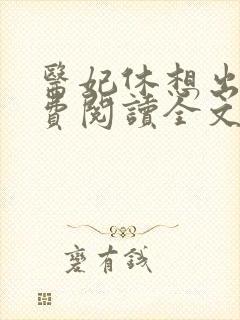 醫妃休想出
費閱讀全文
褻有錢